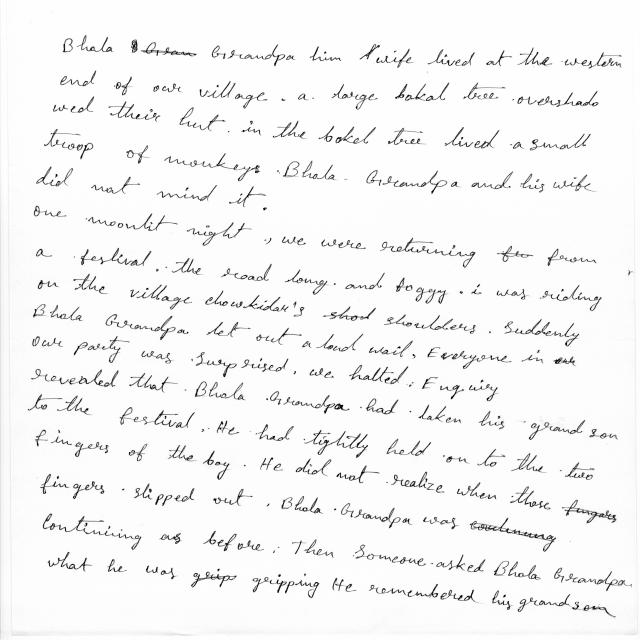 Bhala Grandpa him wife lived at the western
end of our village. a large bakal tree overshado
wed their hut. in the bokel tree lived a small
troop of monkeys. Bhala Grandpa and his wife
did not mind it.
one moonlit night, we were returning from
a festival. the road long and foggy. i was riding
on the village chowkidar's shoulders. Suddenly
Bhala Grandpa let out a loud wail, Everyone in our
our party was surprised, we halted; Enquiry
revealed that Bhala Grandpa had taken his grandson
to the festival. He had tightly held on to the two
fingers of the boy. He did not realize when those fingers
fingers slipped out, Bhala Grandpa was continuing
Continining as before; Then Someone asked Bhala Grandpa
what he was grips gripping He remembered his grandson